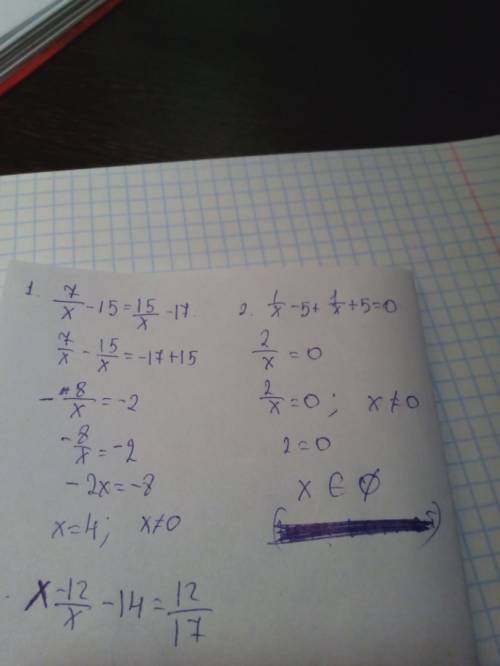 1. 7/x - 15 = 15/x - 17.
7/x - 15/x = -17 + 15
-8/x = -2
-8/x = -2
-2x = -8
x = 4; x ≠ 0
2. 1/x - 5 + 1/x + 5 = 0
2/x = 0
2/x = 0; x ≠ 0
2 = 0
x ∈ ∅
x -12/x - 14 = 12/17